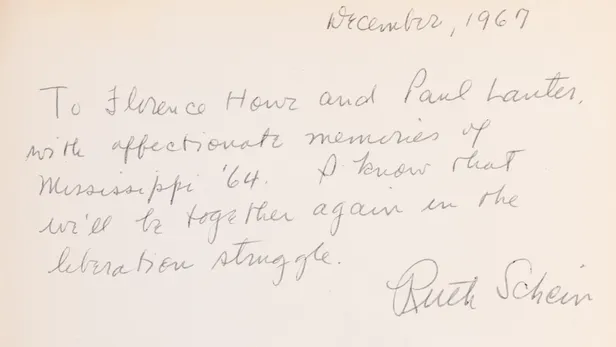 December, 1967
To Florence Howe and Paul Lauter,
with affectionate memories of
Mississippi '64. I know that
we'll be together again in the
liberation struggle.
Ruth Schein